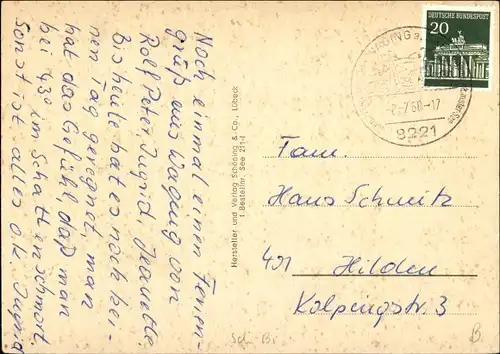 Noch einmal einen Ferien-
gruß aus Waging von
Rolf Peter, Ingrid, Jeanette.
Bis heute hat es noch kei-
nen Tag geregnet, man
hat das Gefühl, daß man
bei 43° im Schatten schmort.
Sonst ist alles ok Ingrid
Hersteller und Verlag Schöning & Co., Lübeck
1 Bestellnr. See 211-1
DEUTSCHE BUNDESPOST
20
WAGING a.
-7.68-17
8221
Fam.
Hans Schmitz
401 Hilden
Kolpingstr. 3
B